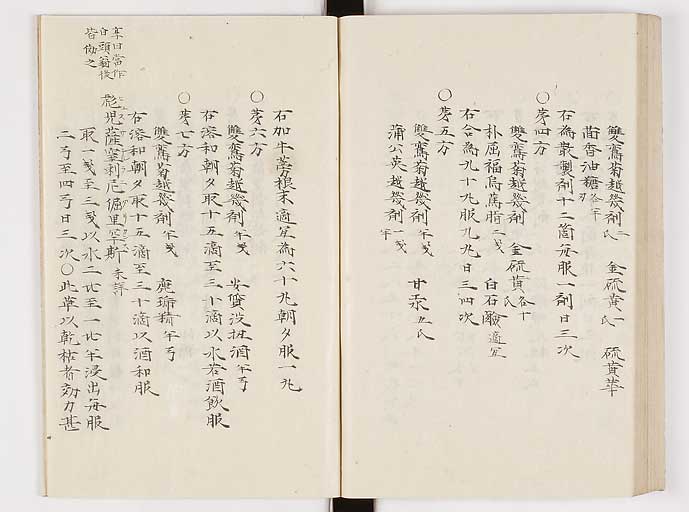 雙鸞菊越幾剤 三氏 金硫黄 一氏 硫黄華
茴香油糖 各半刃
右為散製剤十二箇每服一剤日三次
○苐四方
雙鸞菊越幾剤 金硫黄 各十氏
朴屈福烏篤脂 二戔 白石鹸 適宜
右合為九十九服九丸日三四次
○苐五方
雙鸞菊越幾剤 半戔 甘汞 五氏
蒲公英越幾剤 一戔半
右加牛蒡根末適宜為六十丸朝夕服一丸
○苐六方
雙鸞菊越幾剤 半戔 安質没扯酒 半丂
右溶和朝夕取十五滴至三十滴以水若酒飲服
○苐七方
雙鸞菊越幾剤 半戔 鹿瑜精 半丂
右溶和朝夕取十五滴至三十滴以酒和服
彪児薩窒剌尼倔里罕斯 未詳
取一戔至三戔以水二比至一比半浸出每服
二丂至四丂日三次○此草以乾枯者効力甚
本日當作
白頭翁後
皆倣之